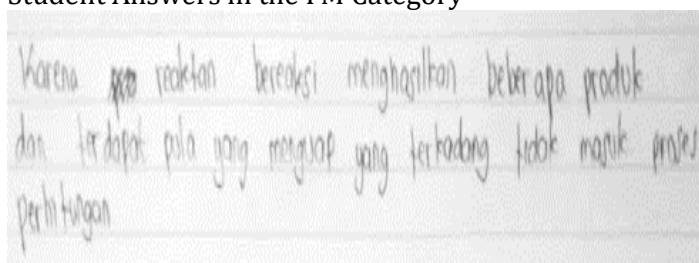 Student Answers in the PM Category
Karena reaktan bereaksi menghasilkan beberapa produk
dan terdapat pula yang menguap yang terkadang tidak masuk proses
perhitungan